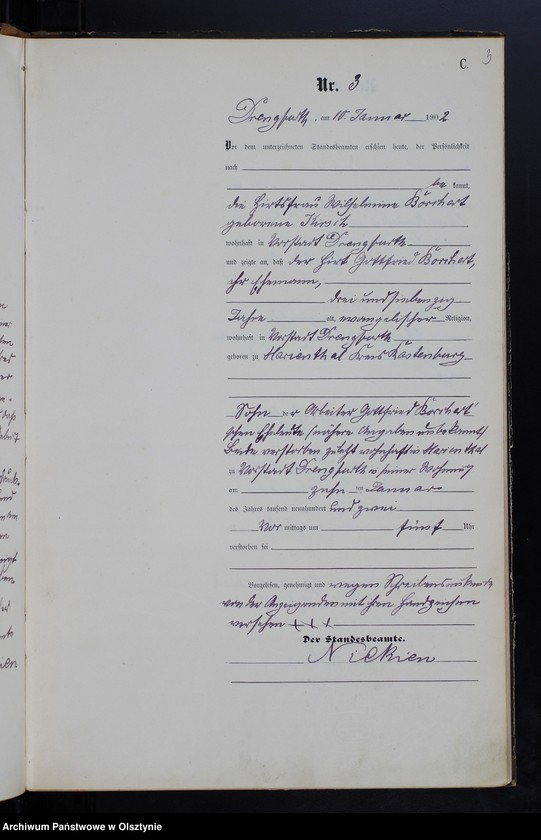 C. 3
Nr. 3
Drengfurth, am 10. Januar 1902
Vor dem unterzeichneten Standesbeamten erschien heute, der Persönlichkeit
nach
be kannt,
die Hirtsfrau Wilhelmine Borchert
geborene Hirsch
wohnhaft in Vorstadt Drengfurth
und zeigte an, daß der Hirt Gottfried Borchert,
ihr Ehemann,
drei und siebenzig
Jahre alt, evangelischer Religion,
wohnhaft in Vorstadt Drengfurth
geboren zu Marienthal Kreis Rastenburg
Sohn der Arbeiter Gottfried Borchert'
schen Eheleute (nähere Angaben unbekannt)
Beide verstorben zuletzt wohnhaft in Marienthal
zu Vorstadt Drengfurth in seiner Wohnung
am zehn ten Januar
des Jahres tausend neunhundert und zwei
Vor mittags um fünf Uhr
verstorben sei
Vorgelesen, genehmigt und wegen Schreibensunkunde
von der Anzeigenden mit ihren Handzeichen
versehen + + +
Der Standesbeamte.
Nickien
Archiwum Państwowe w Olsztynie